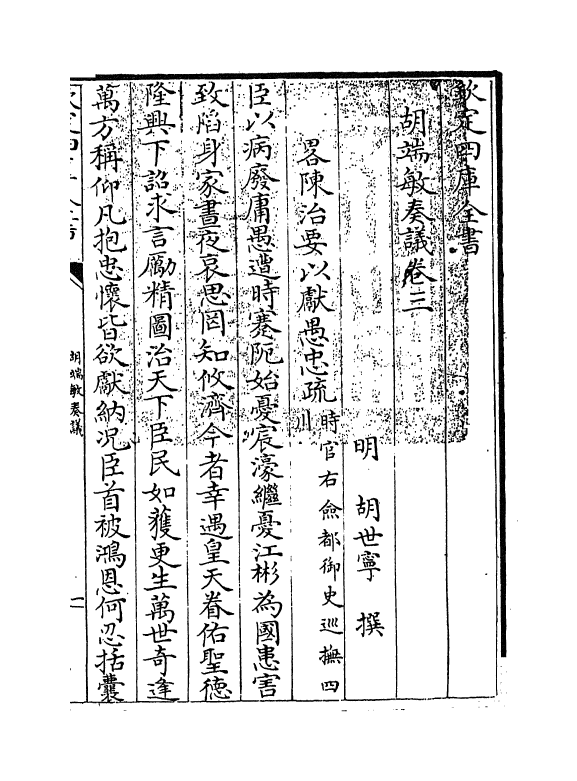 欽定四庫全書
胡端敏奏議卷三
明 胡世寧 撰
畧陳治要以獻愚忠疏 時官右僉都御史巡撫四川
臣以病廢庸愚遭時蹇阨始憂宸濠繼憂江彬為國患害
致陷身家晝夜哀思罔知攸濟今者幸遇皇天眷佑聖德
隆興下詔求言勵精圖治天下臣民如獲更生萬世奇逢
萬方稱仰凡抱忠懷皆欲獻納况臣首被鴻恩何忍括囊
胡端敏奏議